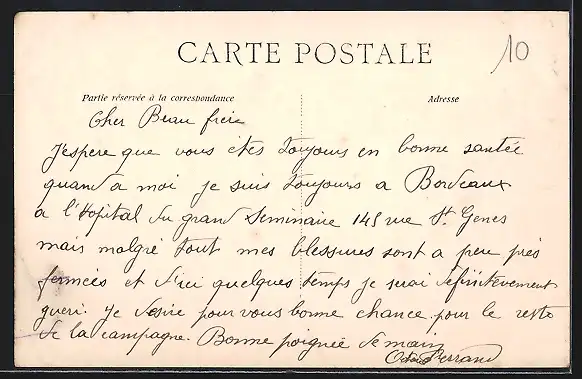 10
CARTE POSTALE
Partie réservée à la correspondance
Adresse
Cher Beau frère
J'espere que vous etes toujours en bonne santée
quand a moi je suis toujours a Bordeaux
a l'Hopital du grand Seminaire 145 rue St. Genes
mais malgré tout mes blessures sont a peu près
fermées et d'ici quelques temps je serai definitevement
gueri. Je desire pour vous bonne chance pour le reste
de la campagne. Bonne poignée de main
Ferrand